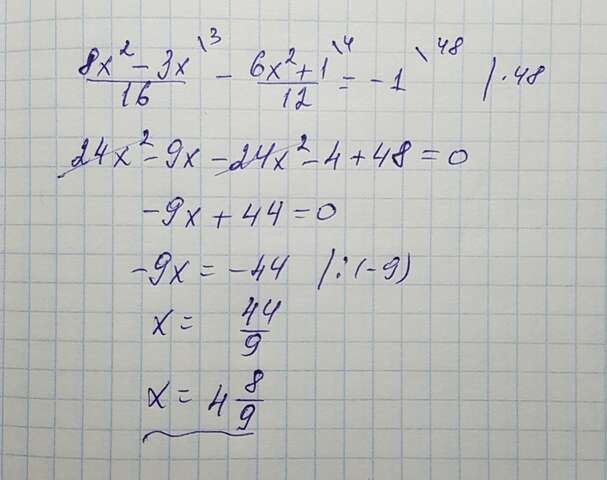 (8x² - 3x)/16 \3 - (6x² + 1)/12 \4 = -1 \48 / · 48
24x² - 9x - 24x² - 4 + 48 = 0
-9x + 44 = 0
-9x = -44 / : (-9)
x = 44/9
x = 4 8/9